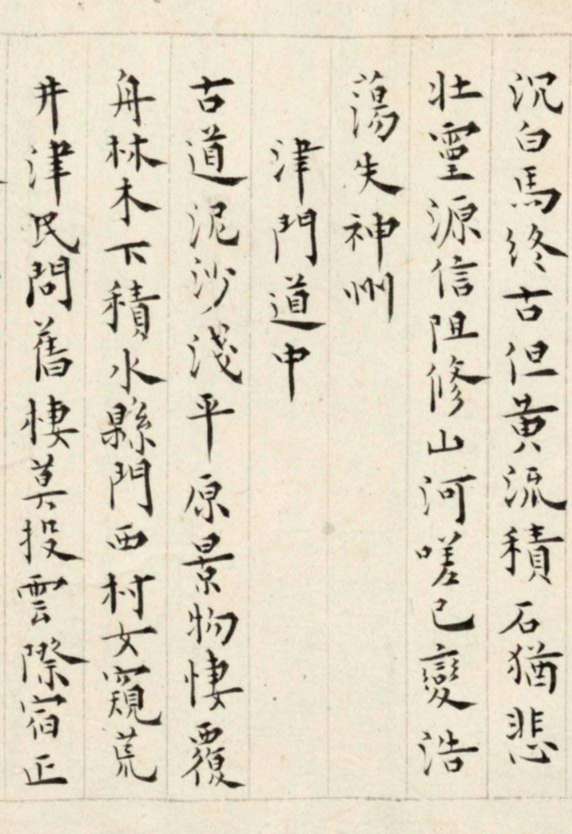 沉白馬終古但黄流積石猶悲
壯靈源信阻修山河嗟已變浩
蕩失神州
津門道中
古道泥沙淺平原景物悽覆
舟林木下積水縣門西村女窺荒
井津民問舊棲莫投雲際宿正